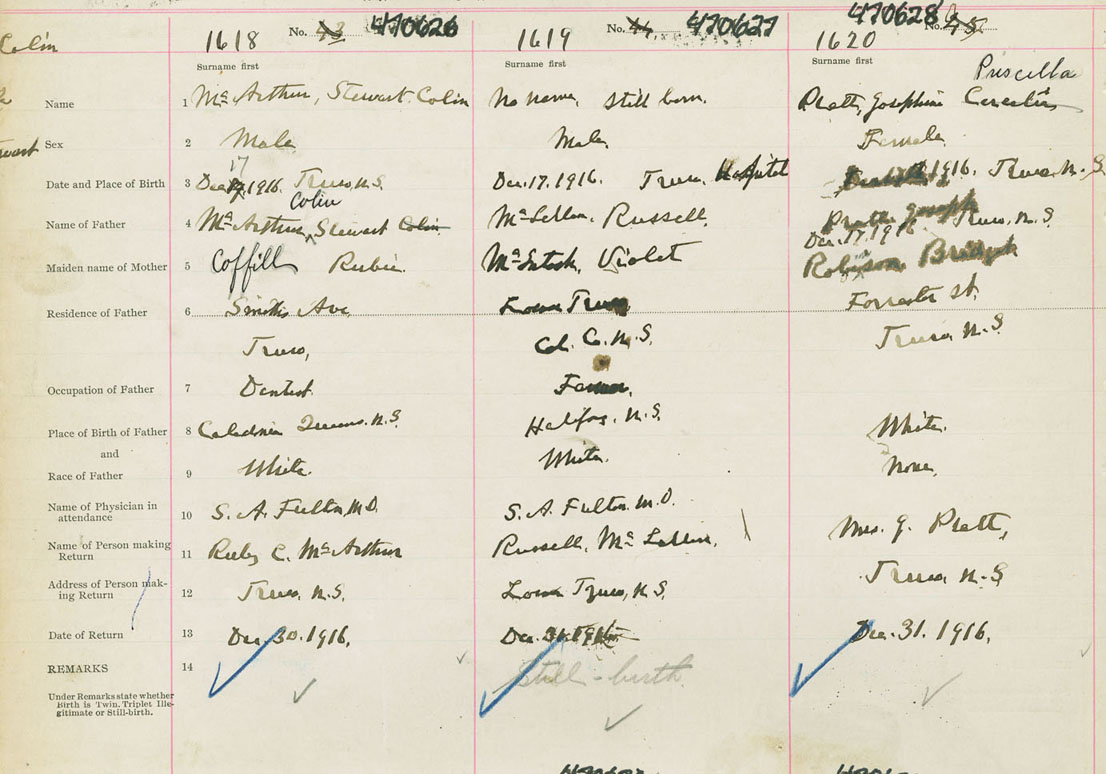 Colin
1618 No. 43 470626 1619 No. 44 470627 1620 470628 No. 45
Surname first Surname first Surname first
Priscilla
Name 1 McArthur, Stewart Colin No name, still born. Pratt, Josephine
Sex 2 Male Male Female
17
Date and Place of Birth 3 Dec 1916. Truro, N.S. Dec. 17. 1916. Truro, Hospital 1916. Truro N.S
Colin
Name of Father 4 McArthur, Stewart Colin McLellan, Russell, Pratt Joseph
Dec. 17. 1916 Truro, N.S
Maiden name of Mother 5 Coffill Rubie McIntosh, Violet Robinson, Bridget
Residence of Father 6 Smiths Ave, Lower Truro Forrester St.
Truro, Col. Co. N.S. Truro N.S
Occupation of Father 7 Dentist Farmer,
Place of Birth of Father 8 Caledonia Queens. N.S. Halifax, N.S. White.
and
Race of Father 9 White. White. None,
Name of Physician in
attendance 10 S. A. Fulton, M.D. S. A. Fulton M.D. Mrs. J. Pratt,
Name of Person making
Return 11 Ruby C. McArthur Russell, McLellan,
Address of Person mak-
ing Return 12 Truro, N.S. Lower Truro, N.S. Truro N.S
Date of Return 13 Dec. 30. 1916. Dec. 31. 1916 Dec. 31. 1916.
REMARKS 14 Still-birth
Under Remarks state whether
Birth is Twin. Triplet Ille-
gitimate or Still-birth.